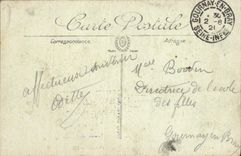 Carte Postale
Correspondance
Adresse
GOURNAY-EN-BRAY
2 -8
21
SEINE-INFRE
affectueux souvenir
Odette
Mlle Boodin
Directrice de l'école
des filles
Gournay en Bray